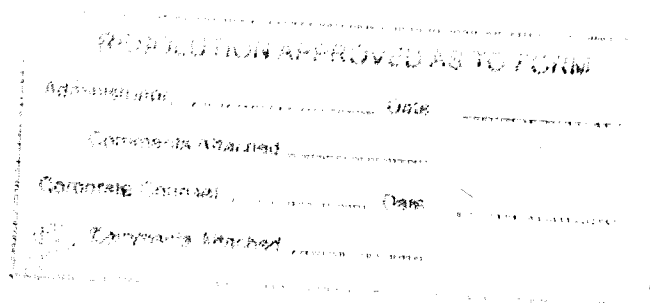 RESOLUTION APPROVED AS TO FORM
Administrator Date
Comments Attached
Corporate Counsel Date
Comments Attached